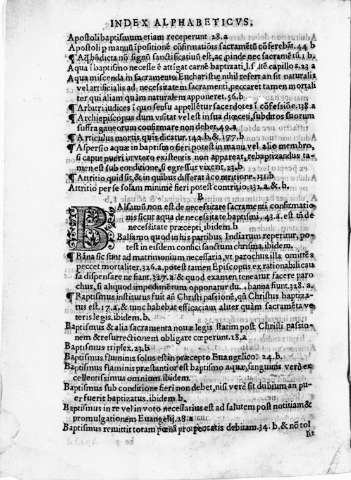 INDEX ALPHABETICVS,
Apostoli baptismum etiam receperunt 28.a
Apostoli p manuū īpositionē cōfirmatiōis sacramētū cōferebāt. 44 b
¶ Aq̄ bñdicta nō signū sanctificatiuū est, ac ꝑinde nec sacramētū. 1 b.
Aqua ī baptismo necesse ē attigat carnē baptizati, l. sītē capillo s. 23 a
Aqua miscenda in sacramento Eucharistię, nihil refert an sit naturalis
vel artificialis ad necessitatem sacramenti, peccaret tamen mortali
ter qui aliam quàm naturalem apponeret. 56. b
¶ Arbitri iudices ī quo sensu appellētur sacerdotes ī cōfessiōne. 138 a
¶ Archiepiscopus dum visitat vel est in sua diœcesi, subditos suorum
suffraganeorum confirmare non debet. 49. a
¶ Articulus mortis quis dicatur. 142. b. & 177. b
¶ Aspersio aquæ in baptismo fieri potest in manu vel alio membro,
si caput pueri in vtero existentis non appareat, rebaptizandus ta-
men est sub conditione, si egressus fuerit. 23. b
¶ Attritio quid sit, & in quibus differat à contritione. 131. b
Attritio per se solam minimè fieri potest contritio. 132. a & b.
B
BAlsamū non est de necessitate sacramenti confirmatio-
nis sicut aqua de necessitate baptismi, 43. a. est tñ de
necessitate præcepti, ibidem b
Balsamo quod in his partibus Indiarum reperitur, po-
test in eisdem confici sanctum chrisma, ibidem.
¶ Bānæ sicut ad matrimonium necessaria, vt parochus illa omittēs
peccet mortaliter, 326. a. potest tamen Episcopus ex rationabili cau
sa dispensare ne fiant. 327. a & quod examen tenetur facere paro
chus, si aliquod impedimentum opponatur dū bannæ fiunt, 328. a.
¶ Baptismus institutus fuit añ Christi passionē, qñ Christus baptiza-
tus est. 17. a, & tunc habebat efficaciam aliter quàm sacramēta ve-
teris legis. ibidem b.
Baptismus & alia sacramenta nouæ legis statim post Christi passio-
nem & resurrectionem obligare cœperunt. 18. a
Baptismus triplex. 23. b
Baptismus fluminis solus est in præcepto Euangelico. 24. b.
Baptismus flaminis præstantior est baptismo aquæ, sanguinis verò ex
cellentissimus omnium. ibidem.
Baptismus sub conditione fieri non debet, nisi verè sit dubium an pu-
er fuerit baptizatus. ibidem b.
Baptismus in re vel in voto necessarius est ad salutem post notitiam &
promulgationem Euangelij. 28. a
Baptismus remittit totam pœnā pro peccatis debitam. 34. b, & nō tol
lit